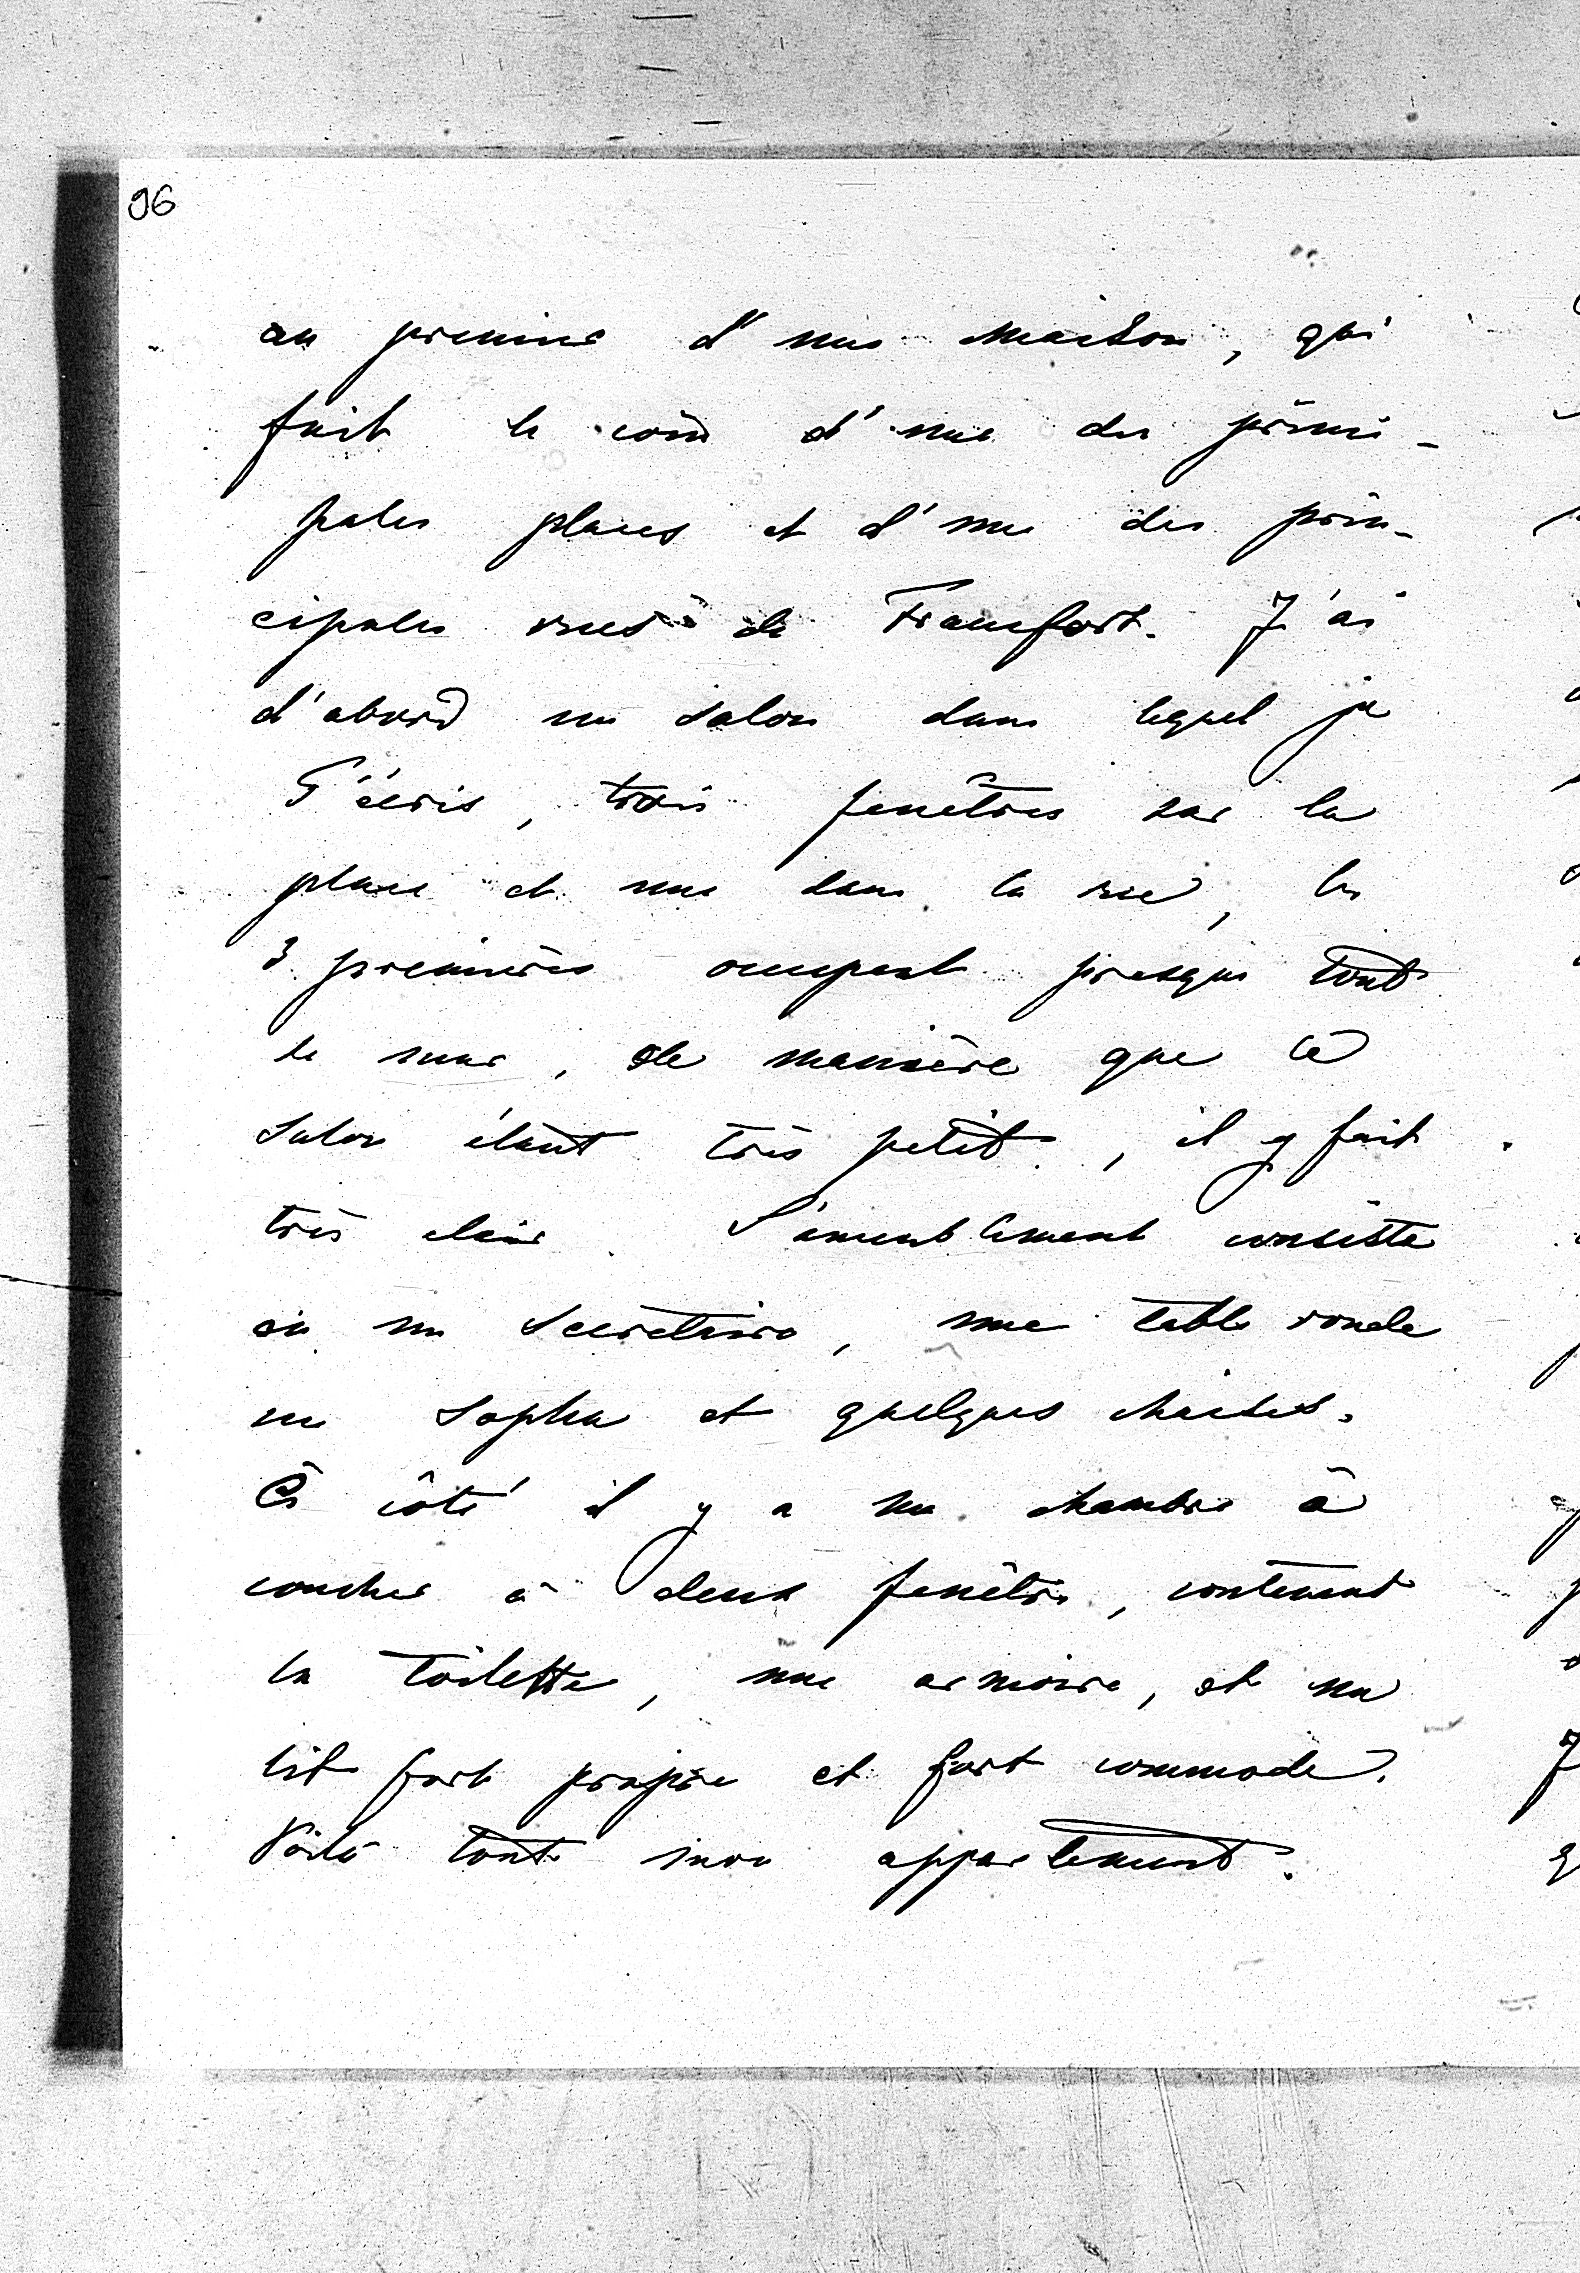 96
au premier d'une maison, qui
fait le coin d'une des princi-
pales places et d'une des prin-
cipales rues de Francfort. J'ai
d'abord un salon dans lequel je
T'écris, trois fenêtres sur la
place et une dans la rue, les
3 premières occupent presque tout
le mur, de manière que ce
salon étant très petit, il y fait
très clair. L'ameublement consiste
en un secrétaire, une table ronde
un sopha et quelques chaises.
à côté il y a une chambre à
coucher à deux fenêtres, contenant
la toilette, une armoire, et un
lit fort propre et fort commode.
Voilà tout mon appartement.